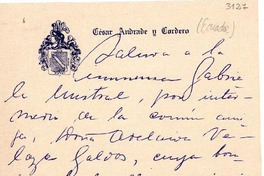 3127
(Ecuador)
César Andrade y Cordero
Saluda a la
inmensa Gabrie
la Mistral, por inter
medio de la común ami
ga, Doña Adelaida Ve
lazco Galdós, cuya bon